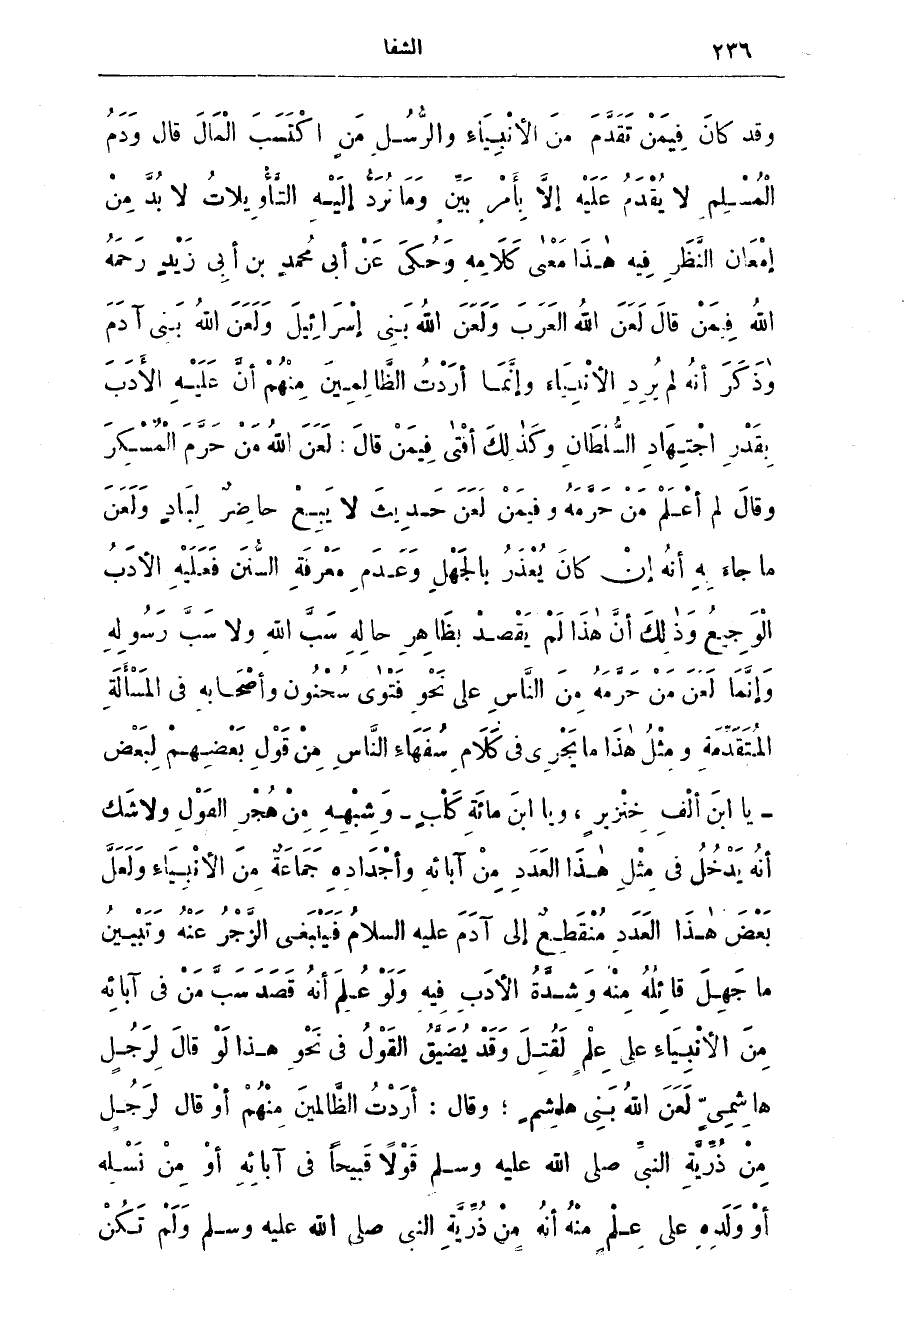 ٢٣٦ الشفا
وقد كانَ فِيمَنْ تَقَدَّمَ مِنَ الأَنْبِيَاءِ والرُّسُلِ مَنِ اكْتَسَبَ الْمَالَ قال ودَمُ
الْمُسْلِمِ لا يُقْدَمُ عليه إلَّا بِأَمْرٍ بَيِّنٍ وَمَا تُرَدُّ إِلَيْهِ التَّأْوِيلاتُ لا بُدَّ مِنْ
إمْعَانِ النَّظَرِ فِيهِ هٰذَا مَعْنٰى كَلَامِهِ وَحُكِىَ عَنْ أبى مُحمدِ بن أبى زَيْدٍ رَحِمَهُ
اللهُ فِيمَنْ قالَ لَعَنَ اللهُ العَرَبَ وَلَعَنَ اللهُ بَنِى إسْرَائِيلَ وَلَعَنَ اللهُ بَنِى آدَمَ
وَذَكَرَ أنهُ لم يُرِدِ الأنْبِيَاءَ وإنَّمَا أرَدْتُ الظَّالِمِينَ مِنْهُمْ أنَّ عَلَيْهِ الأَدَبَ
بِقَدْرِ اجْتِهَادِ السُّلْطَانِ وكَذٰلِكَ أفْتٰى فِيمَنْ قالَ : لَعَنَ اللهُ مَنْ حَرَّمَ الْمُسْكِرَ
وقالَ لم أعْلَمْ مَنْ حَرَّمَهُ وفيمَنْ لَعَنَ حَدِيثَ لا يَبِعْ حاضِرٌ لِبَادٍ وَلَعَنَ
ما جاء بِهِ أنهُ إنْ كانَ يُعْذَرُ بالجَهْلِ وَعَدَمِ مَعْرِفَةِ السُّنَنِ فَعَلَيْهِ الأدَبُ
الْوَجِيعُ وَذٰلِكَ أنَّ هٰذَا لَمْ يَقْصِدْ بِظَاهِرِ حالِهِ سَبَّ اللهِ ولا سَبَّ رَسُولِهِ
وَإنَّمَا لَعَنَ مَنْ حَرَّمَهُ مِنَ النَّاسِ على نَحْوِ فَتْوٰى سُحْنُون وأصْحَابِهِ فى المَسْأَلَةِ
المُتَقَدِّمَةِ وَمِثْلُ هٰذَا ما يَجْرِى فى كَلَامِ سُفَهَاءِ النَّاسِ مِنْ قَوْلِ بَعْضِهِمْ لِبَعْضٍ
ـ يا ابنَ ألْفِ خِنْزِيرٍ ، ويا ابنَ مائَةِ كَلْبٍ ـ وَشِبْهِهِ مِنْ هُجْرِ القَوْلِ ولاشك
أنهُ يَدْخُلُ فى مِثْلِ هٰذَا العَدَدِ مِنْ آبائِهِ وأجْدَادِهِ جَمَاعَةٌ مِنَ الأنْبِيَاءِ وَلَعَلَّ
بَعْضَ هٰذَا العَدَدِ مُنْقَطِعٌ إلى آدَمَ عليه السلامُ فَيَنْبَغِى الزَّجْرُ عَنْهُ وَتَبْيِينُ
ما جَهِلَ قائِلُهُ مِنْهُ وَشِدَّةُ الأدَبِ فِيهِ وَلَوْ عُلِمَ أنهُ قَصَدَ سَبَّ مَنْ فى آبائِهِ
مِنَ الأنْبِيَاءِ على عِلْمٍ لَقُتِلَ وَقَدْ يُضَيَّقُ القَوْلُ فى نَحْوِ هذا لَوْ قالَ لِرَجُلٍ
هاشِمِىٍّ لَعَنَ اللهُ بَنِى هاشِمٍ ؛ وقال : أرَدْتُ الظَّالمِينَ مِنْهُمْ أوْ قال لِرَجُلٍ
مِنْ ذُرِّيَّةِ النبىِّ صلى الله عليه وسلم قَوْلًا قَبِيحًا فى آبائِهِ أوْ مِنْ نَسْلِهِ
أوْ وَلَدِهِ على عِلْمٍ مِنْهُ أنهُ مِنْ ذُرِّيَّةِ النبى صلى الله عليه وسلم وَلَمْ تَكُنْ